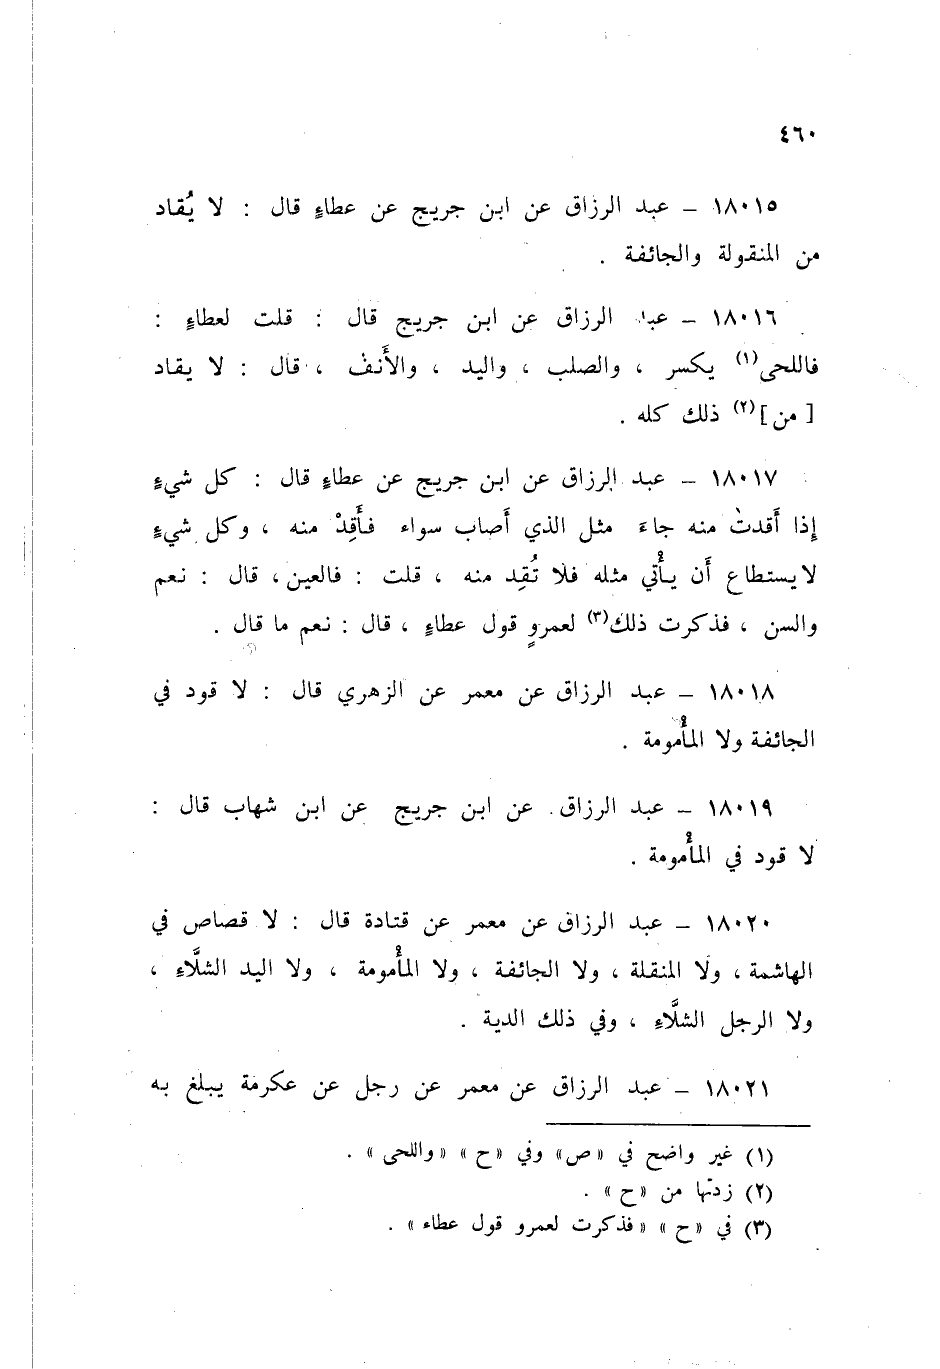 ٤٦٠
١٨٠١٥ – عبد الرزاق عن ابن جريج عن عطاءٍ قال : لا يُقاد
من المنقولة والجائفة .
١٨٠١٦ – عبد الرزاق عن ابن جريج قال : قلت لعطاءٍ :
فاللحى(١) يكسر ، والصلب ، واليد ، والأَنف ، قال : لا يقاد
[ من ](٢) ذلك كله .
١٨٠١٧ – عبد الرزاق عن ابن جريج عن عطاءٍ قال : كل شيءٍ
إذا أَقدتَ منه جاءَ مثل الذي أَصاب سواء فأَقِدْ منه ، وكل شيءٍ
لا يستطاع أَن يأْتي مثله فلا تُقِد منه ، قلت : فالعين ، قال : نعم
والسن ، فذكرت ذلك(٣) لعمروٍ قول عطاءٍ ، قال : نعم ما قال .
١٨٠١٨ – عبد الرزاق عن معمر عن الزهري قال : لا قود في
الجائفة ولا المأْمومة .
١٨٠١٩ – عبد الرزاق عن ابن جريج عن ابن شهاب قال :
لا قود في المأْمومة .
١٨٠٢٠ – عبد الرزاق عن معمر عن قتادة قال : لا قصاص في
الهاشمة ، ولا المنقلة ، ولا الجائفة ، ولا المأْمومة ، ولا اليد الشلَّاء ،
ولا الرجل الشلَّاءِ ، وفي ذلك الدية .
١٨٠٢١ – عبد الرزاق عن معمر عن رجل عن عكرمة يبلغ به
(١) غير واضح في «ص» وفي «ح» «واللحى» .
(٢) زدتها من «ح» .
(٣) في «ح» «فذكرت لعمرو قول عطاء» .